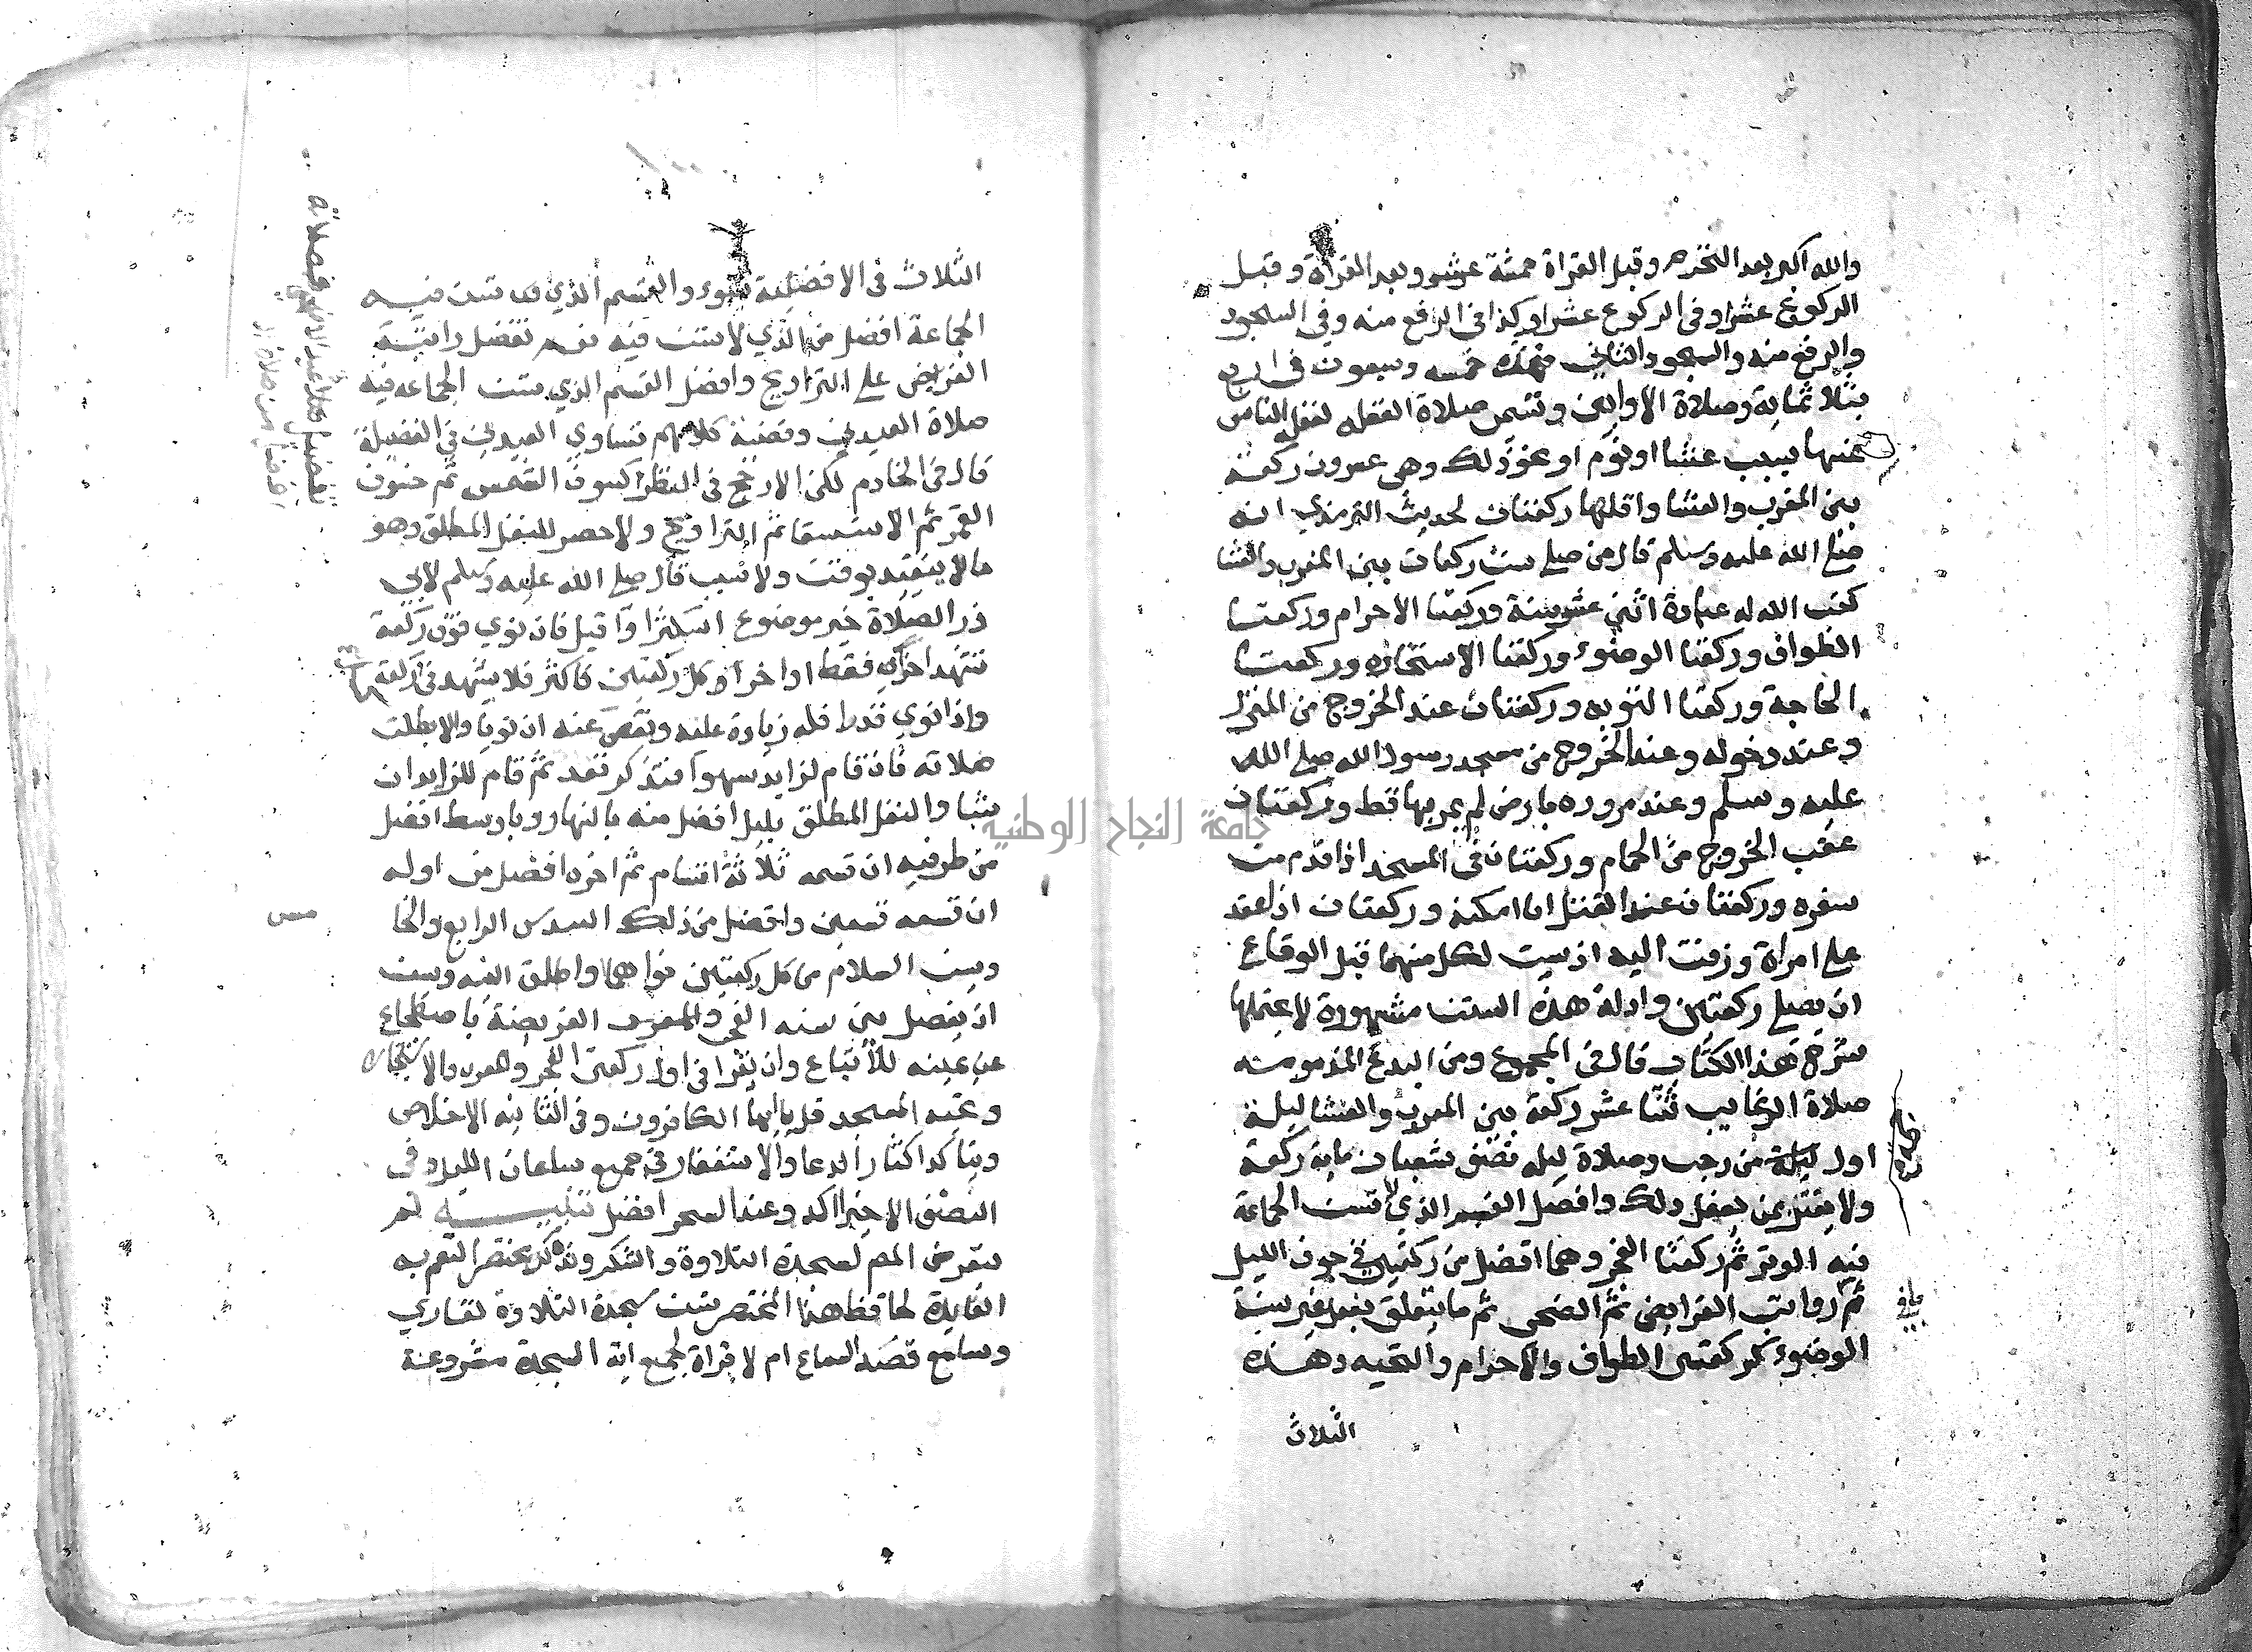 والله اكبر بعد التحرم وقبل القراة خمسة عشر وبعد القراة وقبل
الركوع عشرا وفي الركوع عشرا وكذا في الرفع منه وفي السجود
والرفع منه والسجود الثاني فهذه خمسه وسبعون في اربع
بثلاثماية وصلاة الاوابين وتسمى صلاة الغفله لغفلة الناس
عنها بسبب عشا او نوم او نحو ذلك وهي عشرون ركعة
بين المغرب والعشا واقلها ركعتان لحديث الترمذي انه
صلى الله عليه وسلم قال من صلى ست ركعات بين المغرب والعشا
كتب الله له عبادة اثني عشر سنة وركعتا الاحرام وركعتا
الطواف وركعتا الوضوء وركعتا الاستخاره وركعتا
الحاجة وركعتا التوبه وركعتان عند الخروج من المنزل
وعند دخوله وعند الخروج من مسجد رسول الله صلى الله
عليه وسلم وعند مروره بارض لم يمر بها قط وركعتان
عقب الخروج من الحمام وركعتان في المسجد اذا قدم من
سفره وركعتان عند القتل ان امكنه وركعتان اذا عقد
على امراة وزفت اليه اذ يسن لكل منهما قبل الوقاع
ان يصلي ركعتين وادلة هذه السنن مشهورة لا يحتملها
شرح هذا الكتاب قال في المجموع ومن البدع المذمومه
صلاة الرغايب ثنتا عشر ركعة بين المغرب والعشا ليلة
اول ليلة من رجب وصلاة ليله نصف شعبان ماية ركعة
ولا يغتر بمن يفعل ذلك وافضل القسم الذي لا تسن الجماعة
فيه الوتر ثم ركعتا الفجر وهما افضل من ركعتين في جوف الليل
ثم رواتب الفرايض ثم الضحى ثم ما يتعلق بفعل غير سنة
الوضوء كركعتي الطواف والاحرام والتحيه وهذه
الثلاث
الثلاث في الافضلية سواء والقسم الذي تسن فيه
الجماعة افضل من الذي لا تسن فيه نعم تفضل راتبة
الفرايض على التراويح وافضل القسم الذي تسن الجماعه فيه
صلاة العيدين وقضية كلامهم تساوي العيدين في الفضيلة
قال في الخادم لكن الارجح في النظر كسوف الشمس ثم خسوف
القمر ثم الاستسقا ثم التراويح ولا حصر للنفل المطلق وهو
ما لا يتقيد بوقت ولا سبب قال صلى الله عليه وسلم لابي
ذر الصلاة خير موضوع استكثر او اقل فان نوى فوق ركعة
تشهد اخرا فقط او اخرا وكل ركعتين فاكثر فلا يتشهد في ركعة
واذا نوى قدرا فله زيادة عليه ونقص عنه ان نويا والا بطلت
صلاته فان قام لزايد سهوا فتذكر قعد ثم قام للزايد ان
شا والنفل المطلق بليل افضل منه بالنهار وباوسط افضل
من طرفيه ان قسمه ثلاثة اقسام ثم اخره افضل من اوله
ان قسمه قسمين وافضل من ذلك السدس الرابع والخا
مس
ويسن السلام من كل ركعتين نواهما او اطلق النيه ويسن
ان يفصل بين سنه الفجر والفريضة باضطجاع
على يمينه للاتباع وان يقرا في اول ركعتي الفجر والمغرب والاستخاره
وتحيه المسجد قل يا ايها الكافرون وفي الثانيه الاخلاص
ويتاكد اكثار الدعا والاستغفار في جميع ساعات الليل وفي
النصف الاخير اكد وعند السحر افضل تنبيـــه لم
يتعرض المص لسجدة التلاوة والشكر ونذكر مختصرا لتعم به
الفايدة لحافظ هذا المختصر تسن سجدة التلاوة لقاري
وسامع قصد السماع ام لا قراة لجميع اية السجدة مشروعة